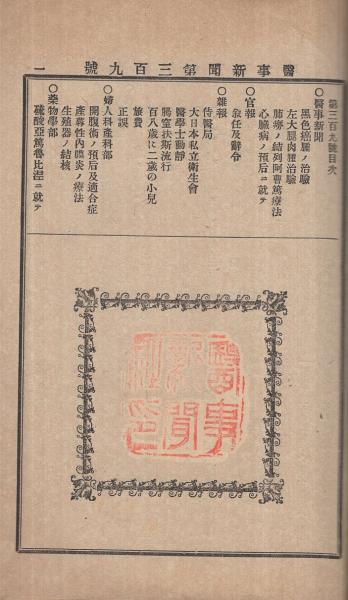 醫事新聞第三百九號
一
第三百九號目次
○醫事新聞
黑色癌腫ノ治驗
左大腿肉腫治驗
肺癆ノ結列阿曹篤療法
心臟病ノ預后ニ就テ
○官報
敘任及辭令
○雜報
侍醫局
大日本私立衛生會
醫學士動靜
腸窒扶斯流行
百八歲に二歲の小兒
旅費
正誤
○婦人科產科部
開腹術ノ預后及適合症
產蓐性內膜炎ノ療法
生殖器ノ結核
○藥物學部
硫酸亞篤魯比涅ニ就テ
醫事
新聞